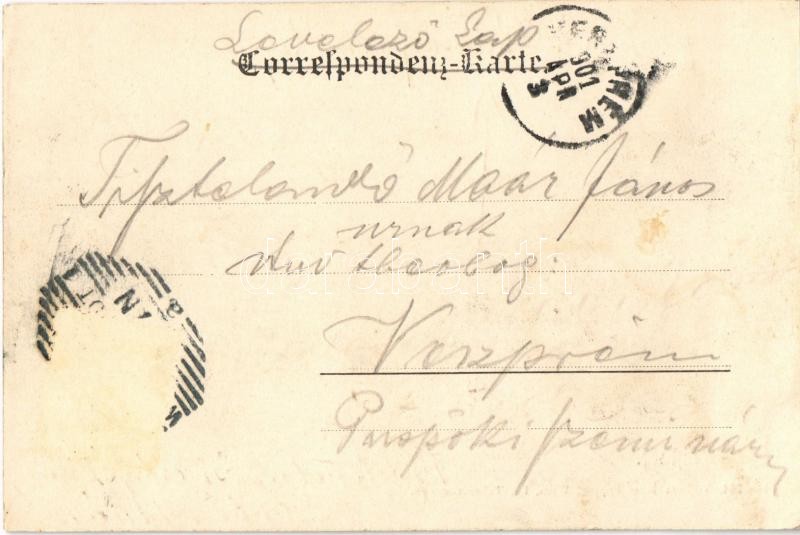 Levelező Lap
Correspondenz-Karte
VESZPRÉM
901
APR
3
Tisztelendő Maár János
urnak
theolog.
Veszprém
Püspöki szeminárium
darabanth